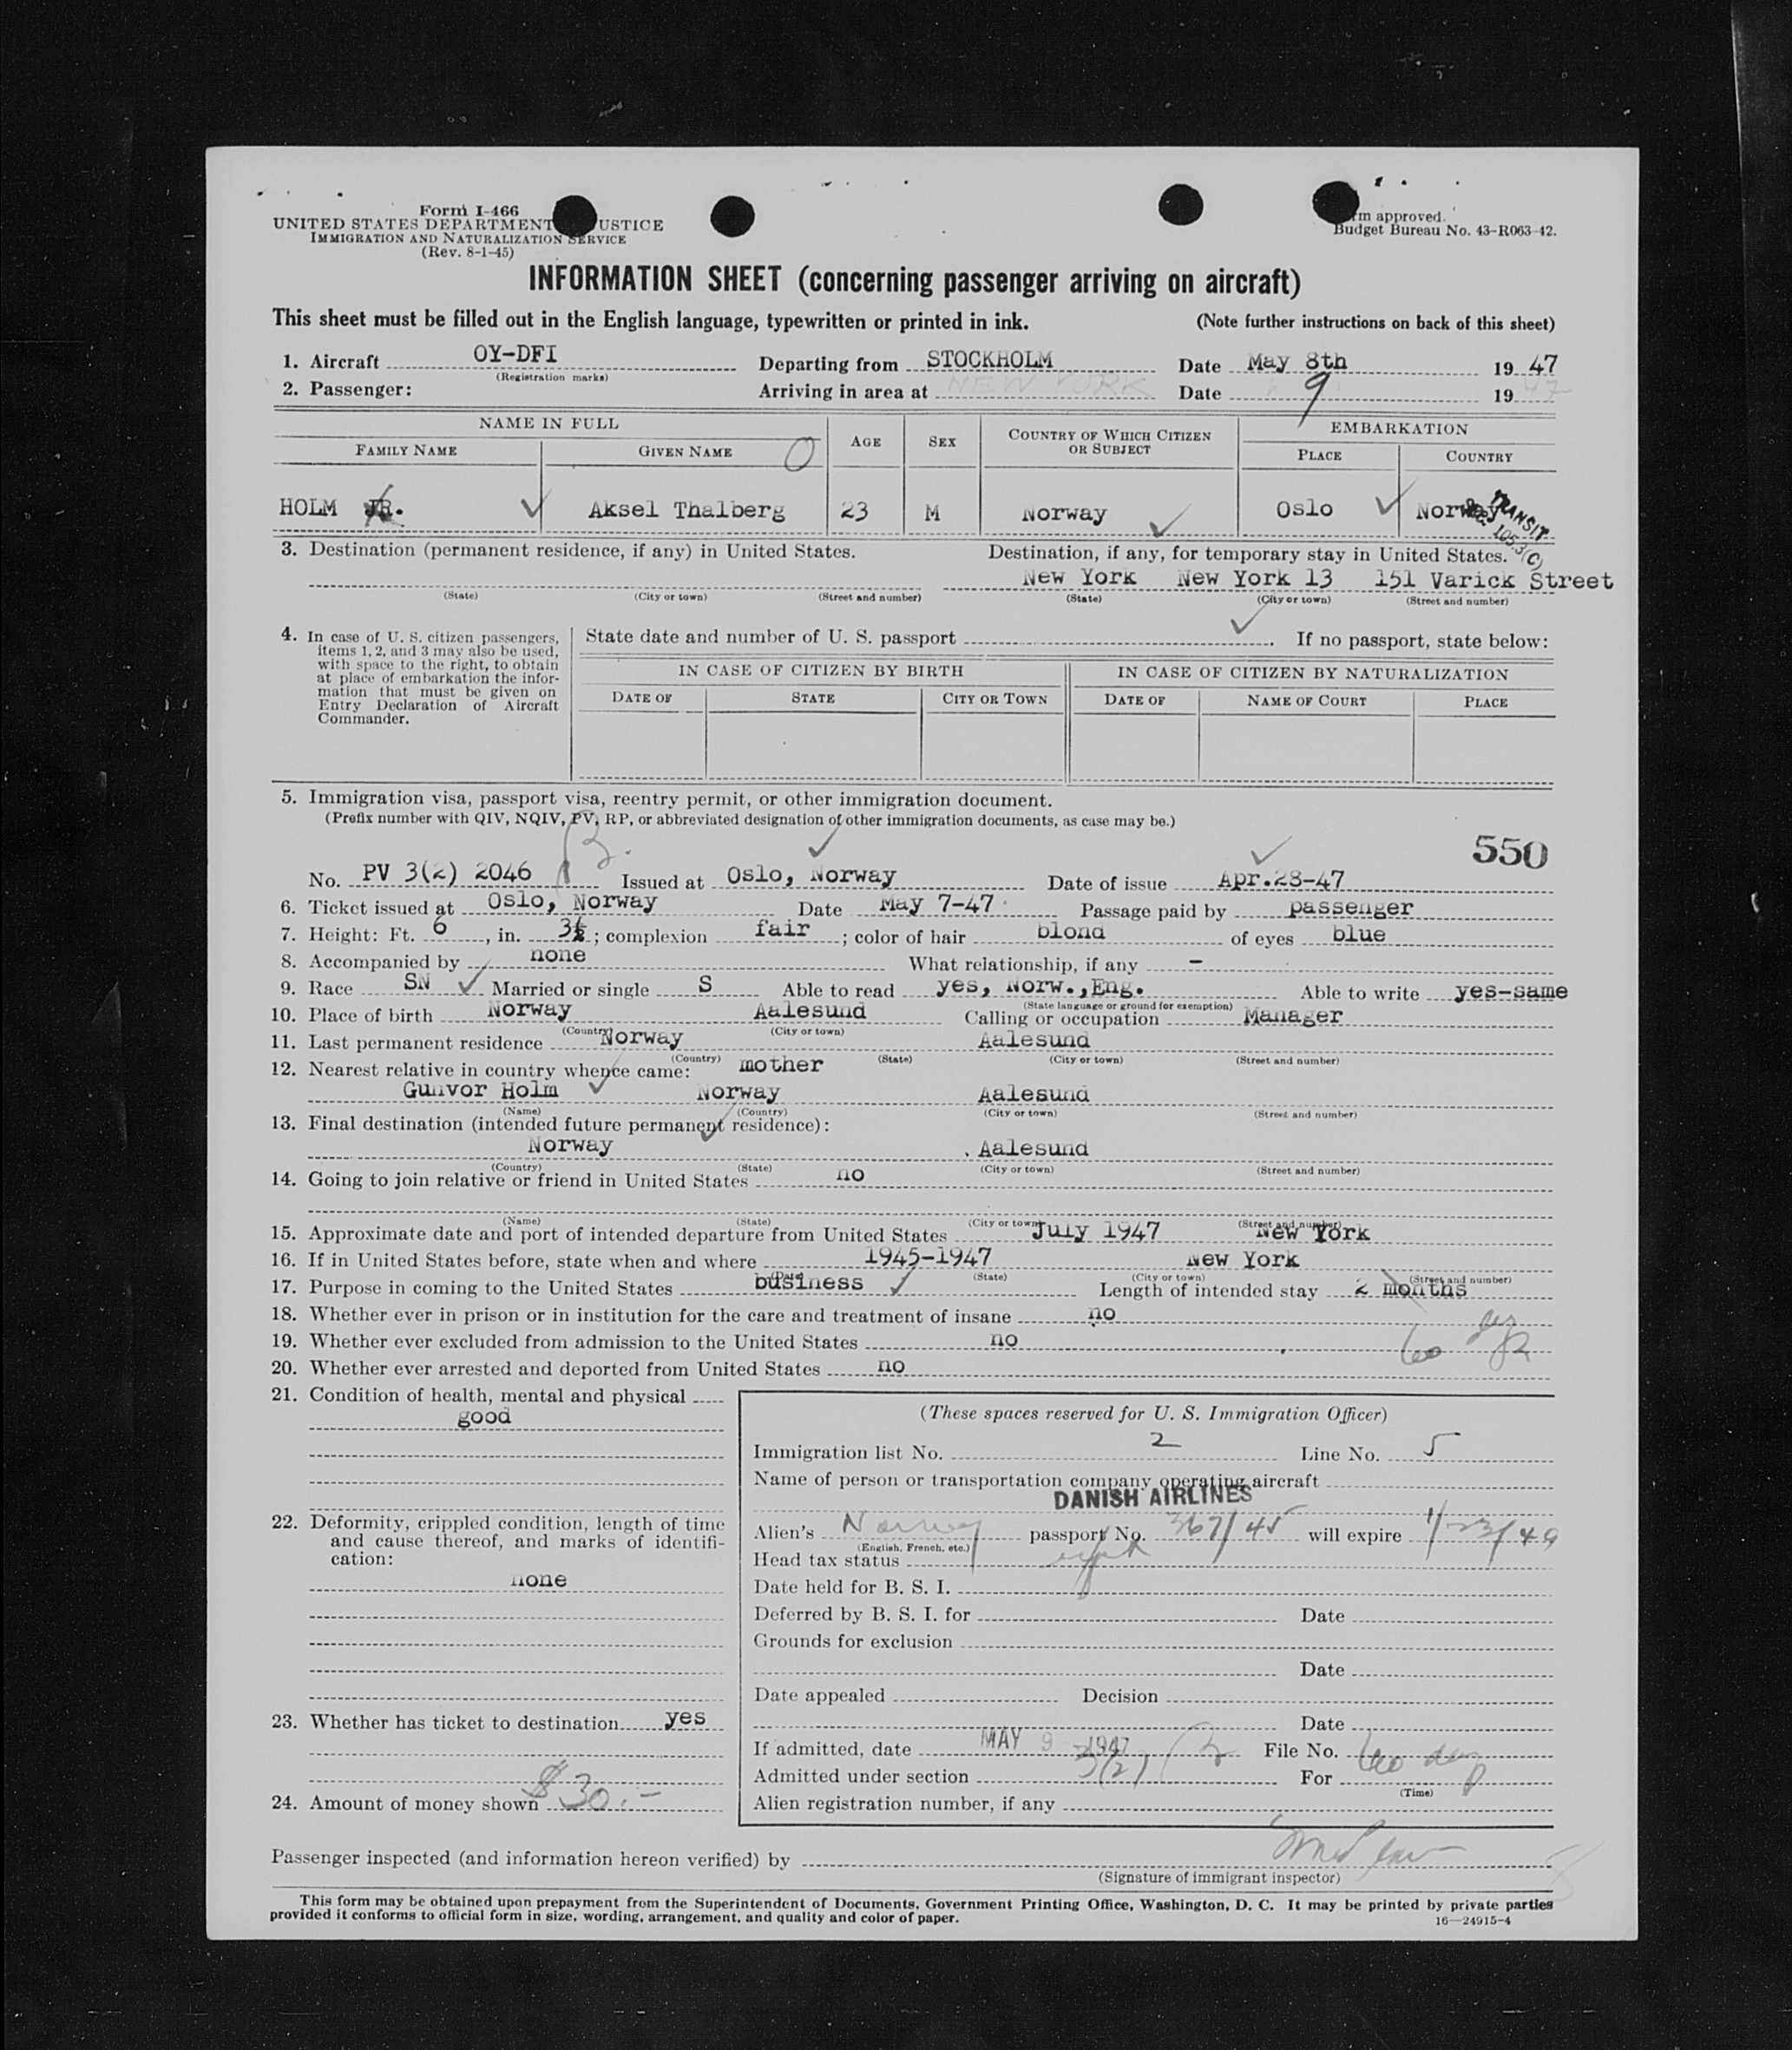 Form I-466
UNITED STATES DEPARTMENT USTICE
IMMIGRATION AND NATURALIZATION SERVICE
(Rev. 8-1-45)
rm approved.
Budget Bureau No. 43-R063-42.
INFORMATION SHEET (concerning passenger arriving on aircraft)
This sheet must be filled out in the English language, typewritten or printed in ink. (Note further instructions on back of this sheet)
1. Aircraft OY-DFI Departing from STOCKHOLM Date May 8th 19 47
(Registration marks)
2. Passenger: Arriving in area at NEW YORK Date 9 19 47
NAME IN FULL AGE SEX COUNTRY OF WHICH CITIZEN OR SUBJECT EMBARKATION
FAMILY NAME GIVEN NAME O PLACE COUNTRY
HOLM JR. Aksel Thalberg 23 M Norway Oslo Norway
TRANSIT
105.3(C)
3. Destination (permanent residence, if any) in United States. Destination, if any, for temporary stay in United States.
New York New York 13 151 Varick Street
(State) (City or town) (Street and number) (State) (City or town) (Street and number)
4. In case of U. S. citizen passengers, items 1, 2, and 3 may also be used, with space to the right, to obtain at place of embarkation the information that must be given on Entry Declaration of Aircraft Commander.
State date and number of U. S. passport If no passport, state below:
IN CASE OF CITIZEN BY BIRTH IN CASE OF CITIZEN BY NATURALIZATION
DATE OF STATE CITY OR TOWN DATE OF NAME OF COURT PLACE
5. Immigration visa, passport visa, reentry permit, or other immigration document.
(Prefix number with QIV, NQIV, PV, RP, or abbreviated designation of other immigration documents, as case may be.)
550
No. PV 3(2) 2046 Issued at Oslo, Norway Date of issue Apr.28-47
6. Ticket issued at Oslo, Norway Date May 7-47 Passage paid by passenger
7. Height: Ft. 6, in. 3½; complexion fair; color of hair blond of eyes blue
8. Accompanied by none What relationship, if any -
9. Race SN Married or single S Able to read yes, Norw.,Eng. Able to write yes-same
(State language or ground for exemption)
10. Place of birth Norway Aalesund Calling or occupation Manager
(Country) (City or town)
11. Last permanent residence Norway Aalesund
(Country) (State) (City or town) (Street and number)
12. Nearest relative in country whence came: mother
Gunvor Holm Norway Aalesund
(Name) (Country) (City or town) (Street and number)
13. Final destination (intended future permanent residence):
Norway Aalesund
(Country) (State) (City or town) (Street and number)
14. Going to join relative or friend in United States no
(Name) (State) (City or town) (Street and number)
15. Approximate date and port of intended departure from United States July 1947 New York
16. If in United States before, state when and where 1945-1947 New York
(Date) (State) (City or town) (Street and number)
17. Purpose in coming to the United States business Length of intended stay 2 months
18. Whether ever in prison or in institution for the care and treatment of insane no
19. Whether ever excluded from admission to the United States no
20. Whether ever arrested and deported from United States no
21. Condition of health, mental and physical
good
22. Deformity, crippled condition, length of time and cause thereof, and marks of identification:
none
23. Whether has ticket to destination yes
24. Amount of money shown $30.-
(These spaces reserved for U. S. Immigration Officer)
Immigration list No. 2 Line No. 5
Name of person or transportation company operating aircraft
DANISH AIRLINES
Alien's Norway passport No. 367/45 will expire 1/23/49
(English, French, etc.)
Head tax status
Date held for B. S. I.
Deferred by B. S. I. for Date
Grounds for exclusion
Date
Date appealed Decision
Date
If admitted, date MAY 9 1947 File No.
Admitted under section 3(2) For
(Time)
Alien registration number, if any
Passenger inspected (and information hereon verified) by
(Signature of immigrant inspector)
This form may be obtained upon prepayment from the Superintendent of Documents, Government Printing Office, Washington, D. C. It may be printed by private parties
provided it conforms to official form in size, wording, arrangement, and quality and color of paper.
16—24915-4